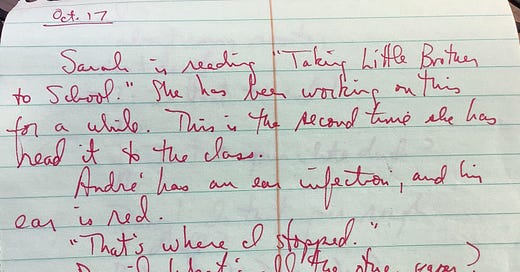 Oct. 17
Sarah is reading "Taking Little Brother
to School." She has been working on this
for a while. This is the second time she has
read it to the class.
André has an ear infection, and his
ear is red.
"That's where I stopped."
the